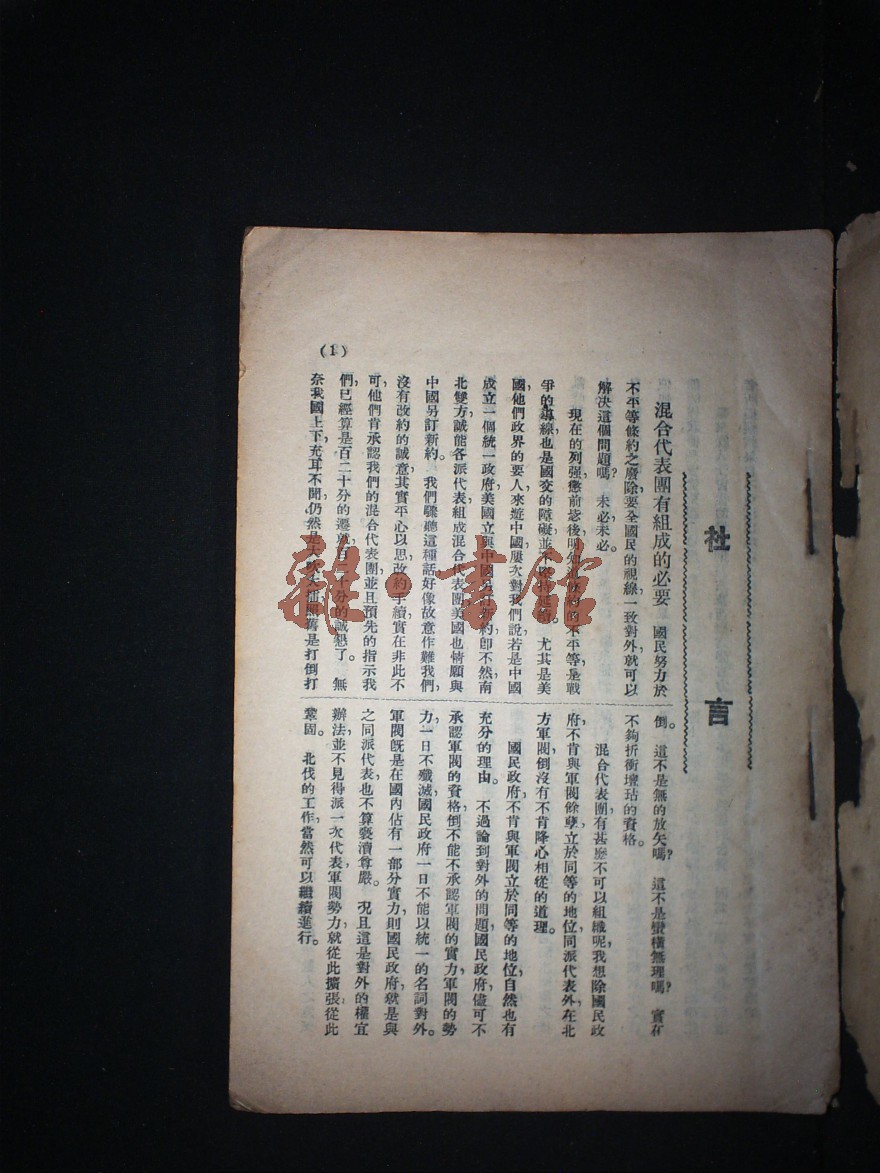 社言
混合代表團有組成的必要　國民努力於
不平等條約之廢除要全國民的視線，一致對外，就可以
解决這個問題嗎？　未必未必。
現在的列强懲前毖後，明知這條約的不平等，是戰
爭的導線，也是國交的障礙，並不
。　尤其是美
國他們政界的要人來遊中國，屢次對我們說，若是中國
成立一個統一政府，美國立與中國另訂新約，卽不然，南
北雙方，誠能各派代表，組成混合代表團，美國也情願與
中國另訂新約。　我們驟聽這種話，好像故意作難我們，
沒有改約的誠意，其實平心以思，改約手續，實在非此不
可，他們肯承認我們的混合代表團，並且預先的指示我
們，已經算是百二十分的遷就，百二十分的誠懇了。　無
奈我國上下，充耳不聞，仍然是大吹大擂，照舊是打倒打
倒。　這不是無的放矢嗎？　這不是蠻橫無理嗎？　實在
不夠折衝壇坫的資格。
混合代表團，有甚麽不可以組織呢，我想除國民政
府不肯與軍閥餘孽，立於同等的地位，同派代表外，在北
方軍閥，倒沒有不肯降心相從的道理。
國民政府，不肯與軍閥立於同等的地位，自然也有
充分的理由。　不過論到對外的問題，國民政府，儘可不
承認軍閥的資格，倒不能不承認軍閥的實力，軍閥的勢
力，一日不殲滅，國民政府一日不能以統一的名詞對外。
軍閥旣是在國內佔有一部分實力，則國民政府，就是與
之同派代表，也不算褻瀆尊嚴。　况且這是對外的權宜
辦法，並不見得派一次代表，軍閥勢力，就從此擴張，從此
鞏固。　北伐的工作，當然可以繼續進行。
(1)
雜·書館